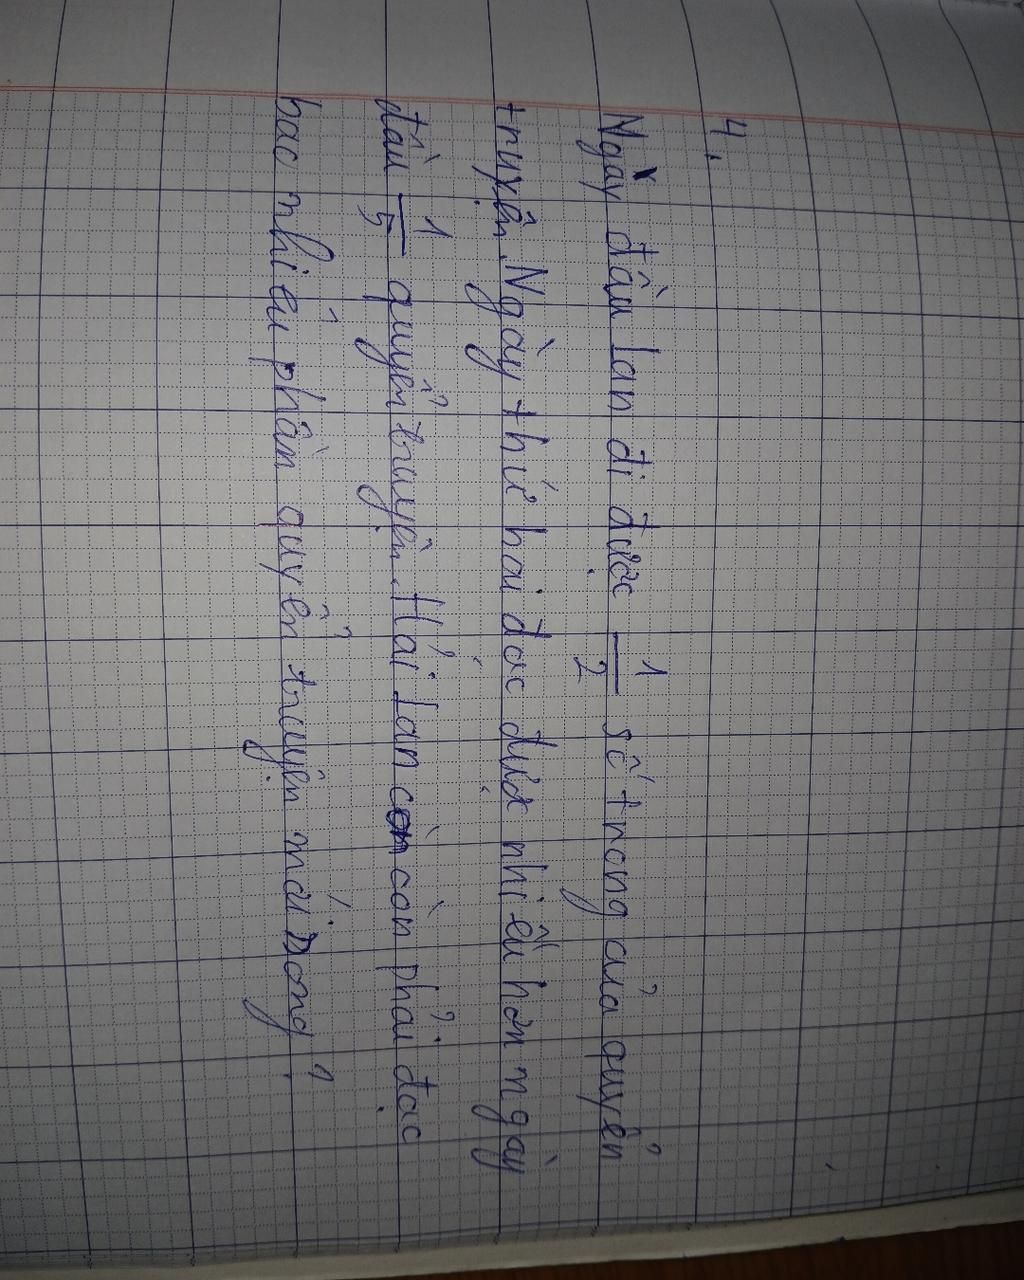 4.
Ngày đầu Lan đi được 1/2 số trong của quyển
truyện. Ngày thứ hai đọc được nhiều hơn ngày
đầu 1/5 quyển truyện. Hỏi Lan còn phải đọc
bao nhiêu phần quyển truyện mới xong?